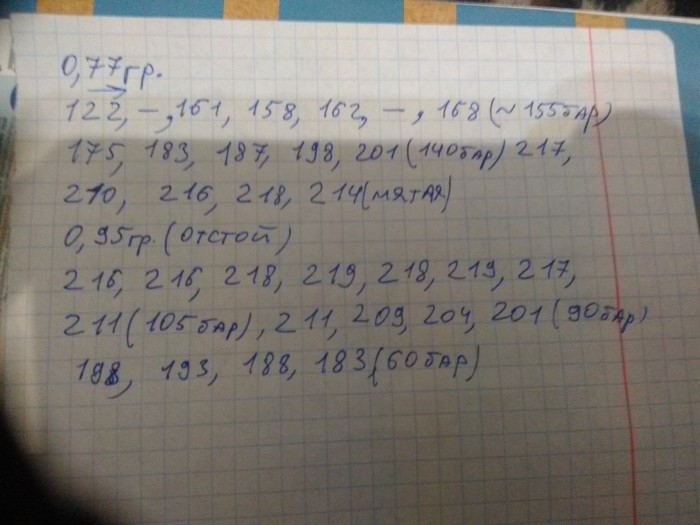 0,77гр.
122, –, 161, 158, 162, –, 168 (~155бар)
175, 183, 187, 198, 201 (140бар) 217,
210, 216, 218, 214 (мятая)
0,95гр. (отстой)
216, 216, 218, 219, 218, 219, 217,
211 (105бар), 211, 209, 204, 201 (90бар)
198, 193, 188, 183 (60бар)